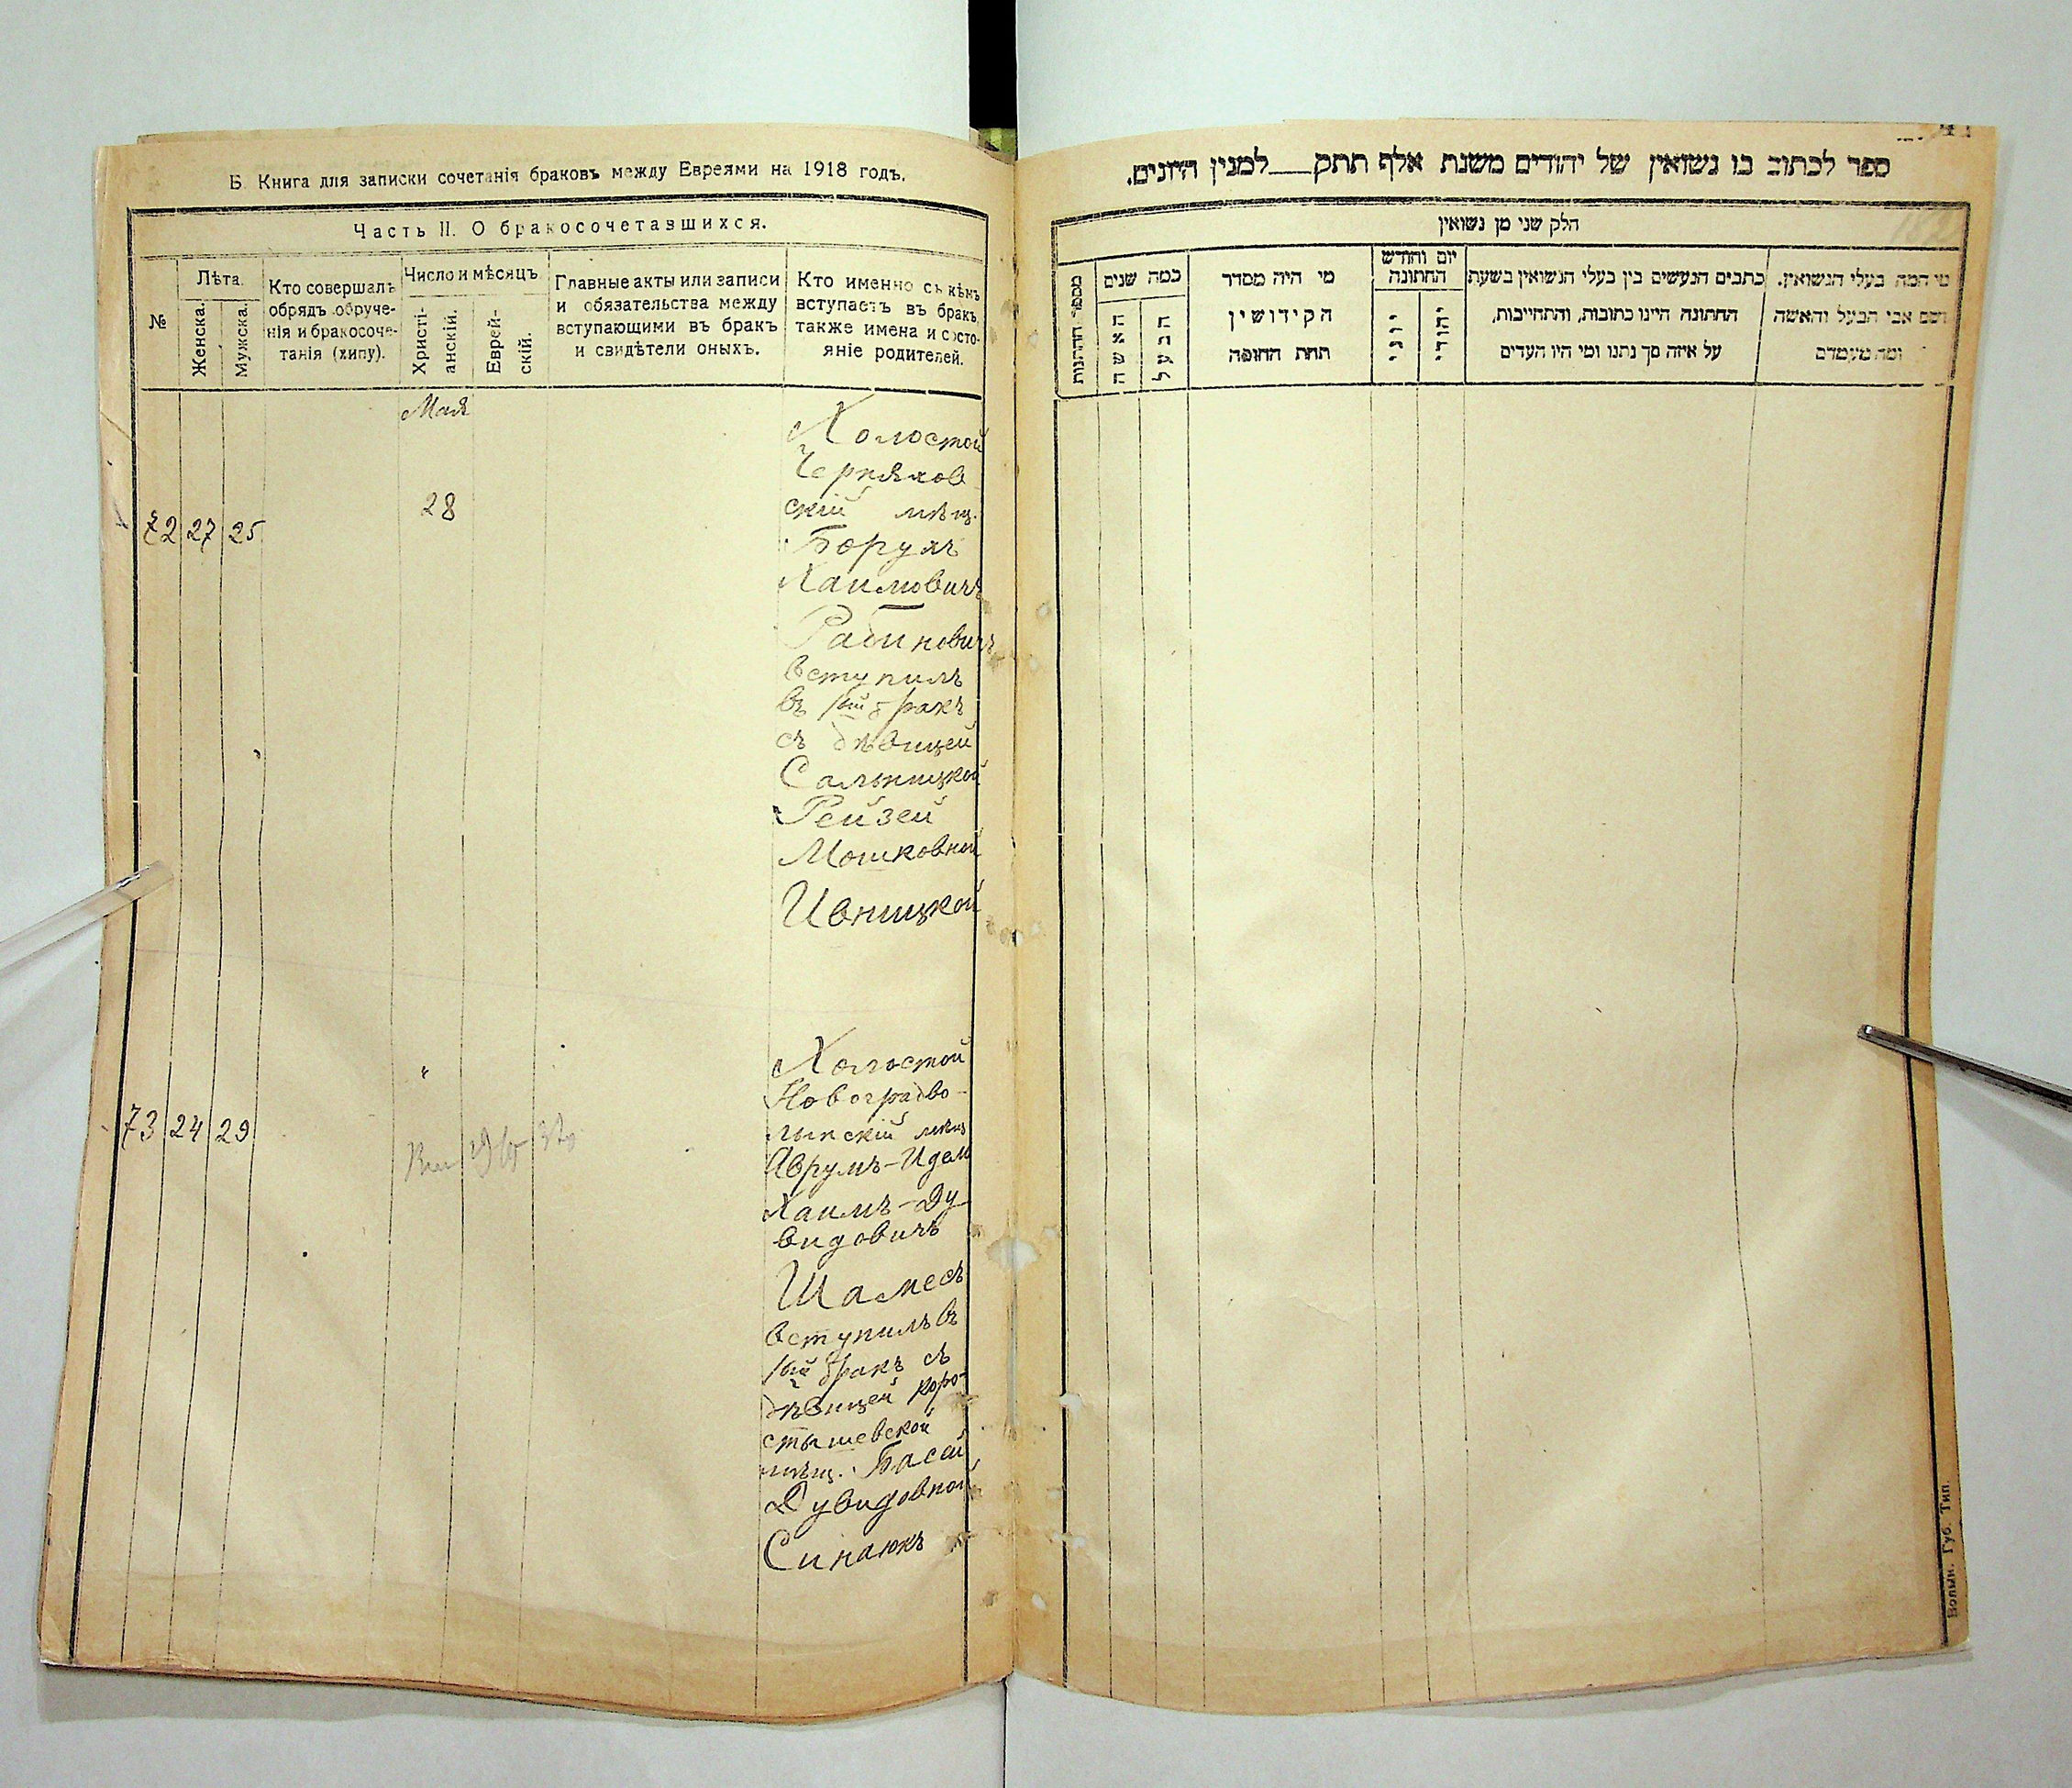 Б. Книга для записки сочетанія браковъ между Евреями на 1918 годъ.
Часть II. О бракосочетавшихся.
№
Лѣта.
Женска.
Мужска.
Кто совершалъ
обрядъ обруче-
нія и бракосоче-
танія (хипу).
Число и мѣсяцъ
Христі-
анскій.
Еврей-
скій.
Главные акты или записи
и обязательства между
вступающими въ бракъ
и свидѣтели оныхъ.
Кто именно съ кѣмъ
вступаетъ въ бракъ,
также имена и состо-
яніе родителей.
Мая
72 27 25
28
Холостой
Черняхов
скій мѣщ.
Борухъ
Хаимовичъ
Рабиновичъ
вступилъ
въ 1ый бракъ
съ дѣвицей
Сальницкой
Рейзей
Мошковной
Ивницкой
73 24 29
"
Холостой
Новоградво-
лынскій мѣщ
Аврумъ-Идель
Хаимъ-Ду-
видовичъ
Шамесъ
вступилъ въ
1ый бракъ съ
дѣвицей коро-
стышевской
мѣщ. Басей
Дувидовной
Синаюкъ
ספר לכתוב בו נשואין של יהודים משנת אלף תתק למנין היונים.
חלק שני מן נשואין
מספר החתונות
כמה שנים
האשה
הבעל
מי היה מסדר
הקידושין
תחת החופה
יום וחודש
החתונה
יוני
יהודי
כתבים הנעשים בין בעלי הנשואין בשעת
החתונה היינו כתובות, והתחייבות,
על איזה סך נתנו ומי היו העדים
מי המה בעלי הנשואין.
ושם אבי הבעל והאשה
ומה מעמדם
Волын. Губ. Тип.